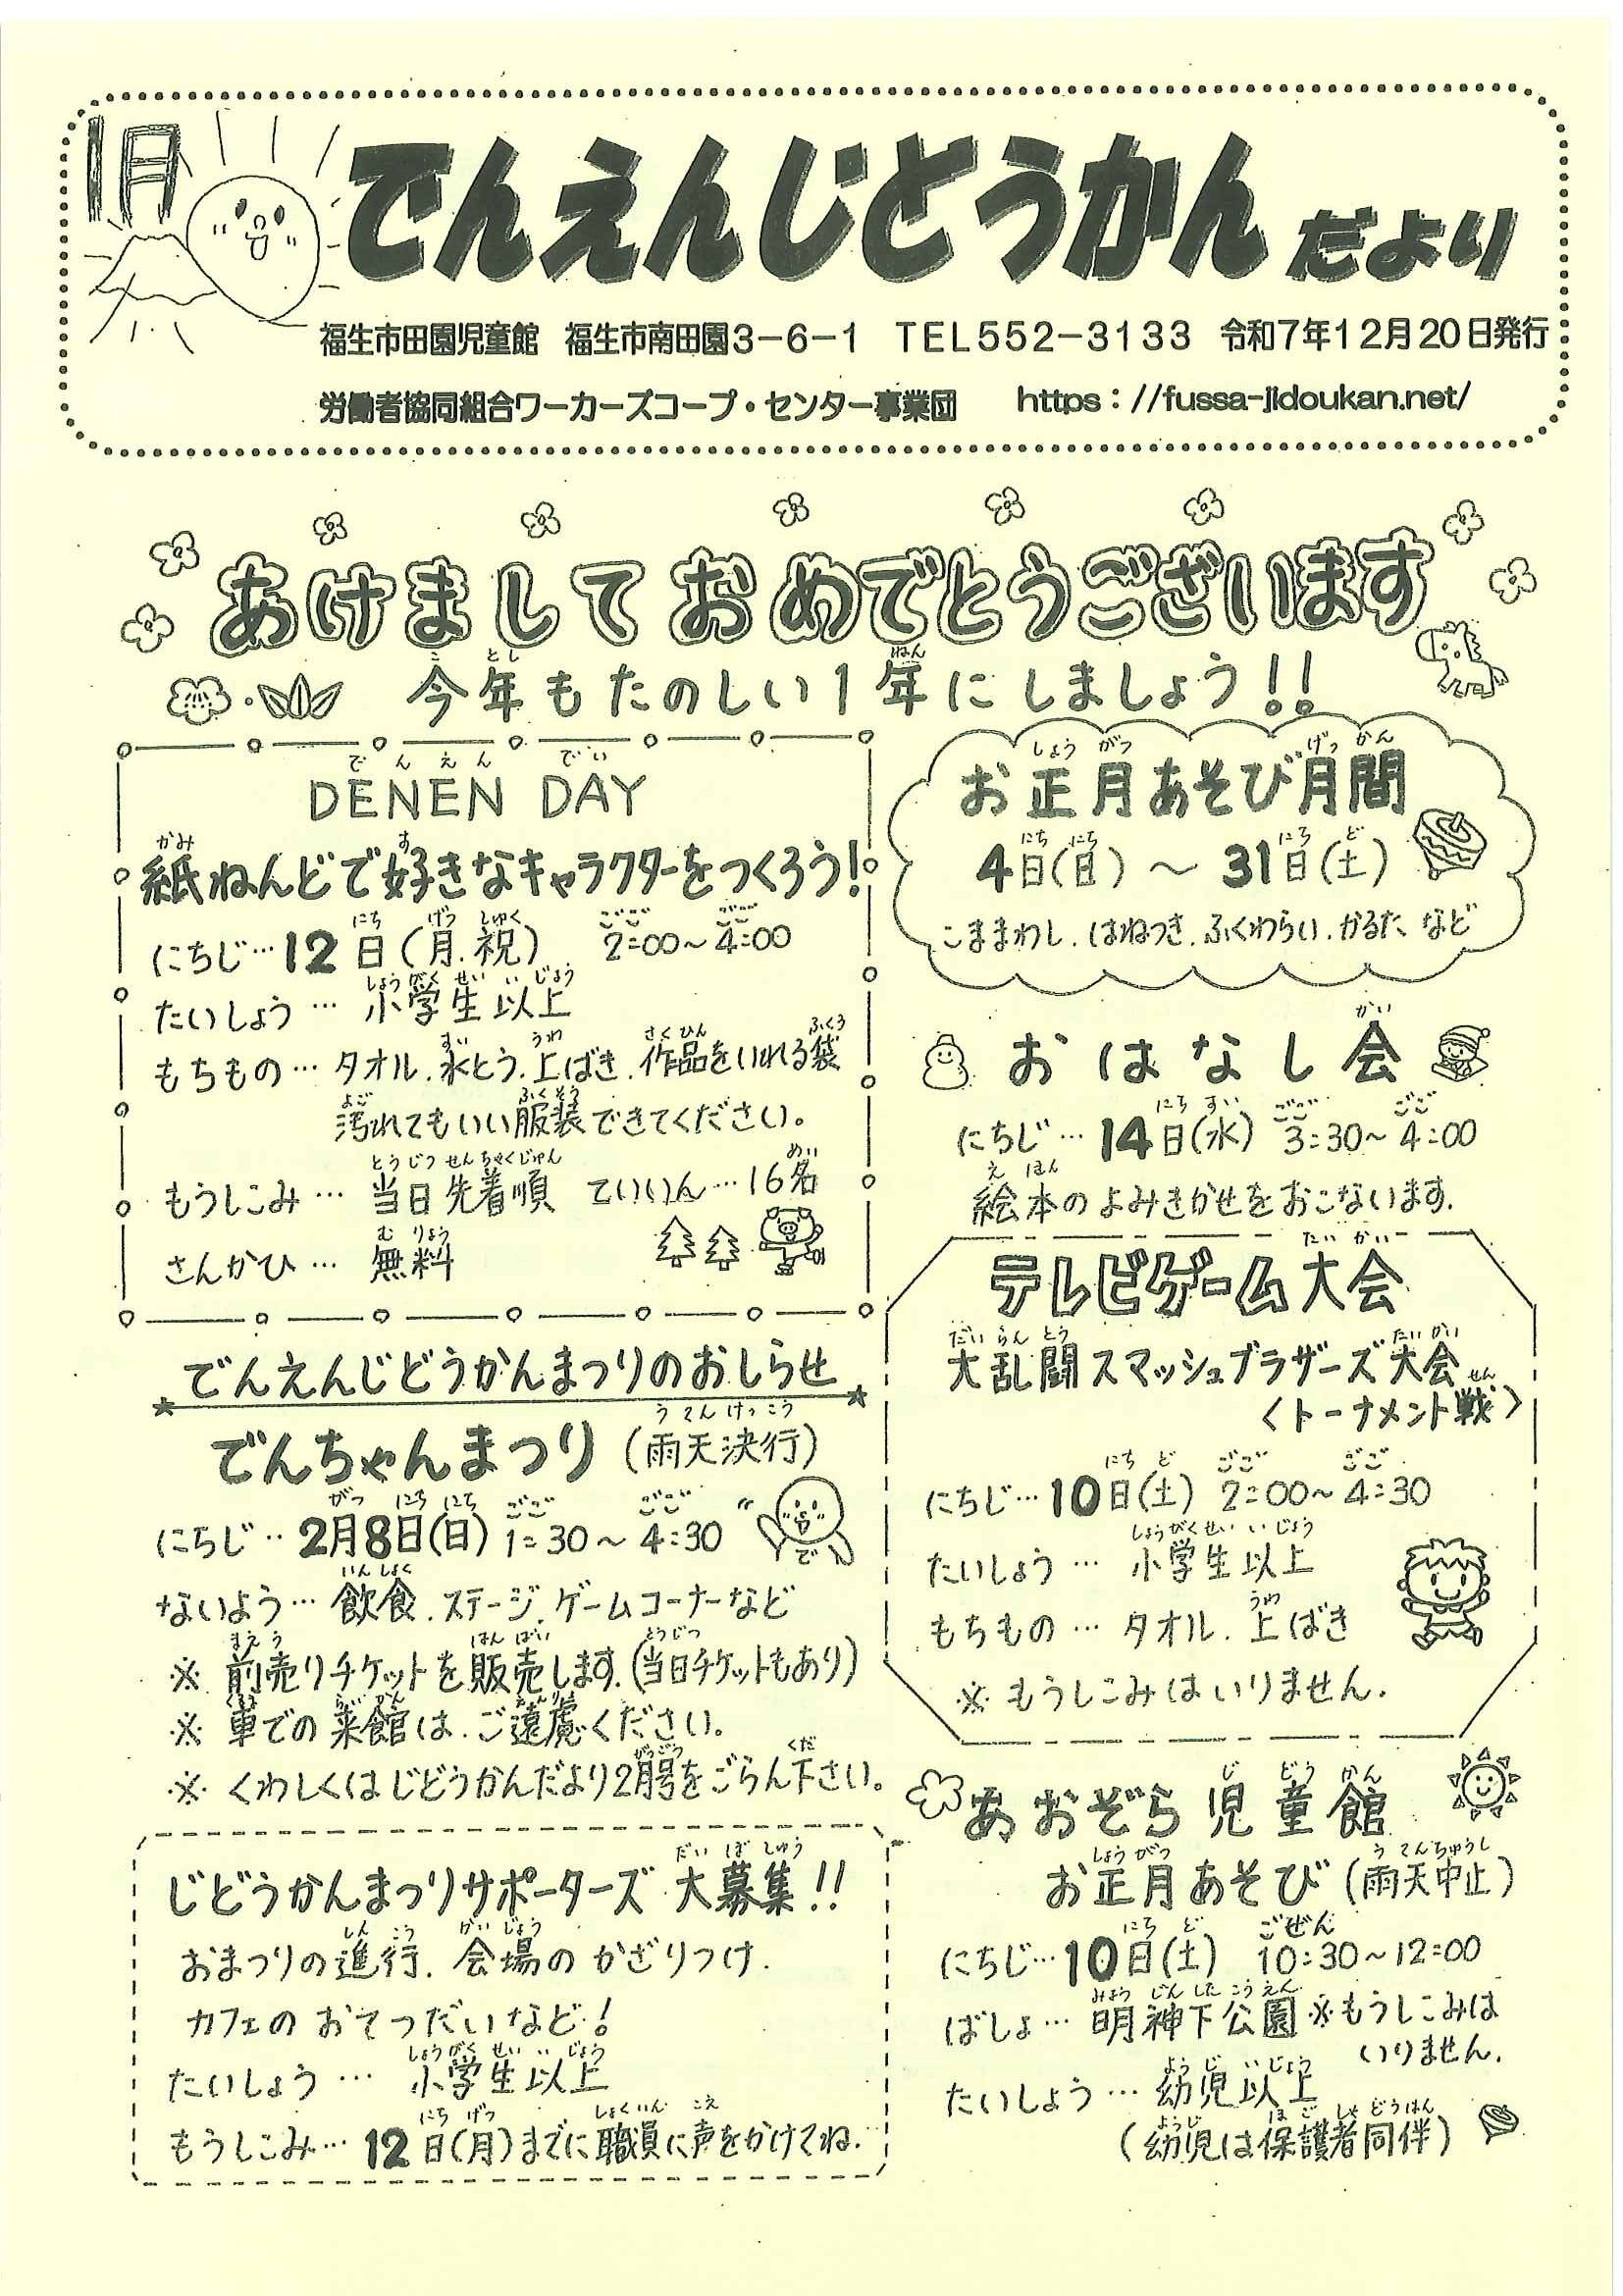 1月
でんえんじどうかんだより
福生市田園児童館 福生市南田園3-6-1 TEL552-3133 令和7年12月20日発行
労働者協同組合ワーカーズコープ・センター事業団 https://fussa-jidoukan.net/
あけましておめでとうございます
今年もたのしい1年にしましょう!!
DENEN DAY
紙ねんどで好きなキャラクターをつくろう!
にちじ…12日(月.祝) ごご2:00~ごご4:00
たいしょう…小学生以上
もちもの…タオル.水とう.上ばき.作品をいれる袋
汚れてもいい服装できてください。
もうしこみ…当日先着順 ていいん…16名
さんかひ…無料
でんえんじどうかんまつりのおしらせ
でんちゃんまつり(雨天決行)
にちじ…2月8日(日) ごご1:30~ごご4:30
で
ないよう…飲食.ステージ.ゲームコーナーなど
※前売りチケットを販売します.(当日チケットもあり)
※車での来館は.ご遠慮ください。
※くわしくはじどうかんだより2月号をごらん下さい。
じどうかんまつりサポーターズ 大募集!!
おまつりの進行.会場のかざりつけ.
カフェのおてつだいなど!
たいしょう…小学生以上
もうしこみ…12日(月)までに職員に声をかけてね.
お正月あそび月間
4日(日)~31日(土)
こままわし.はねつき.ふくわらい.かるた など
おはなし会
にちじ…14日(水) ごご3:30~ごご4:00
絵本のよみきかせをおこないます.
テレビゲーム大会
大乱闘スマッシュブラザーズ大会
<トーナメント戦>
にちじ…10日(土) ごご2:00~ごご4:30
たいしょう…小学生以上
もちもの…タオル.上ばき
※もうしこみはいりません.
あおぞら児童館
お正月あそび(雨天中止)
にちじ…10日(土) ごぜん10:30~12:00
ばしょ…明神下公園 ※もうしこみは
いりません.
たいしょう…幼児以上
(幼児は保護者同伴)